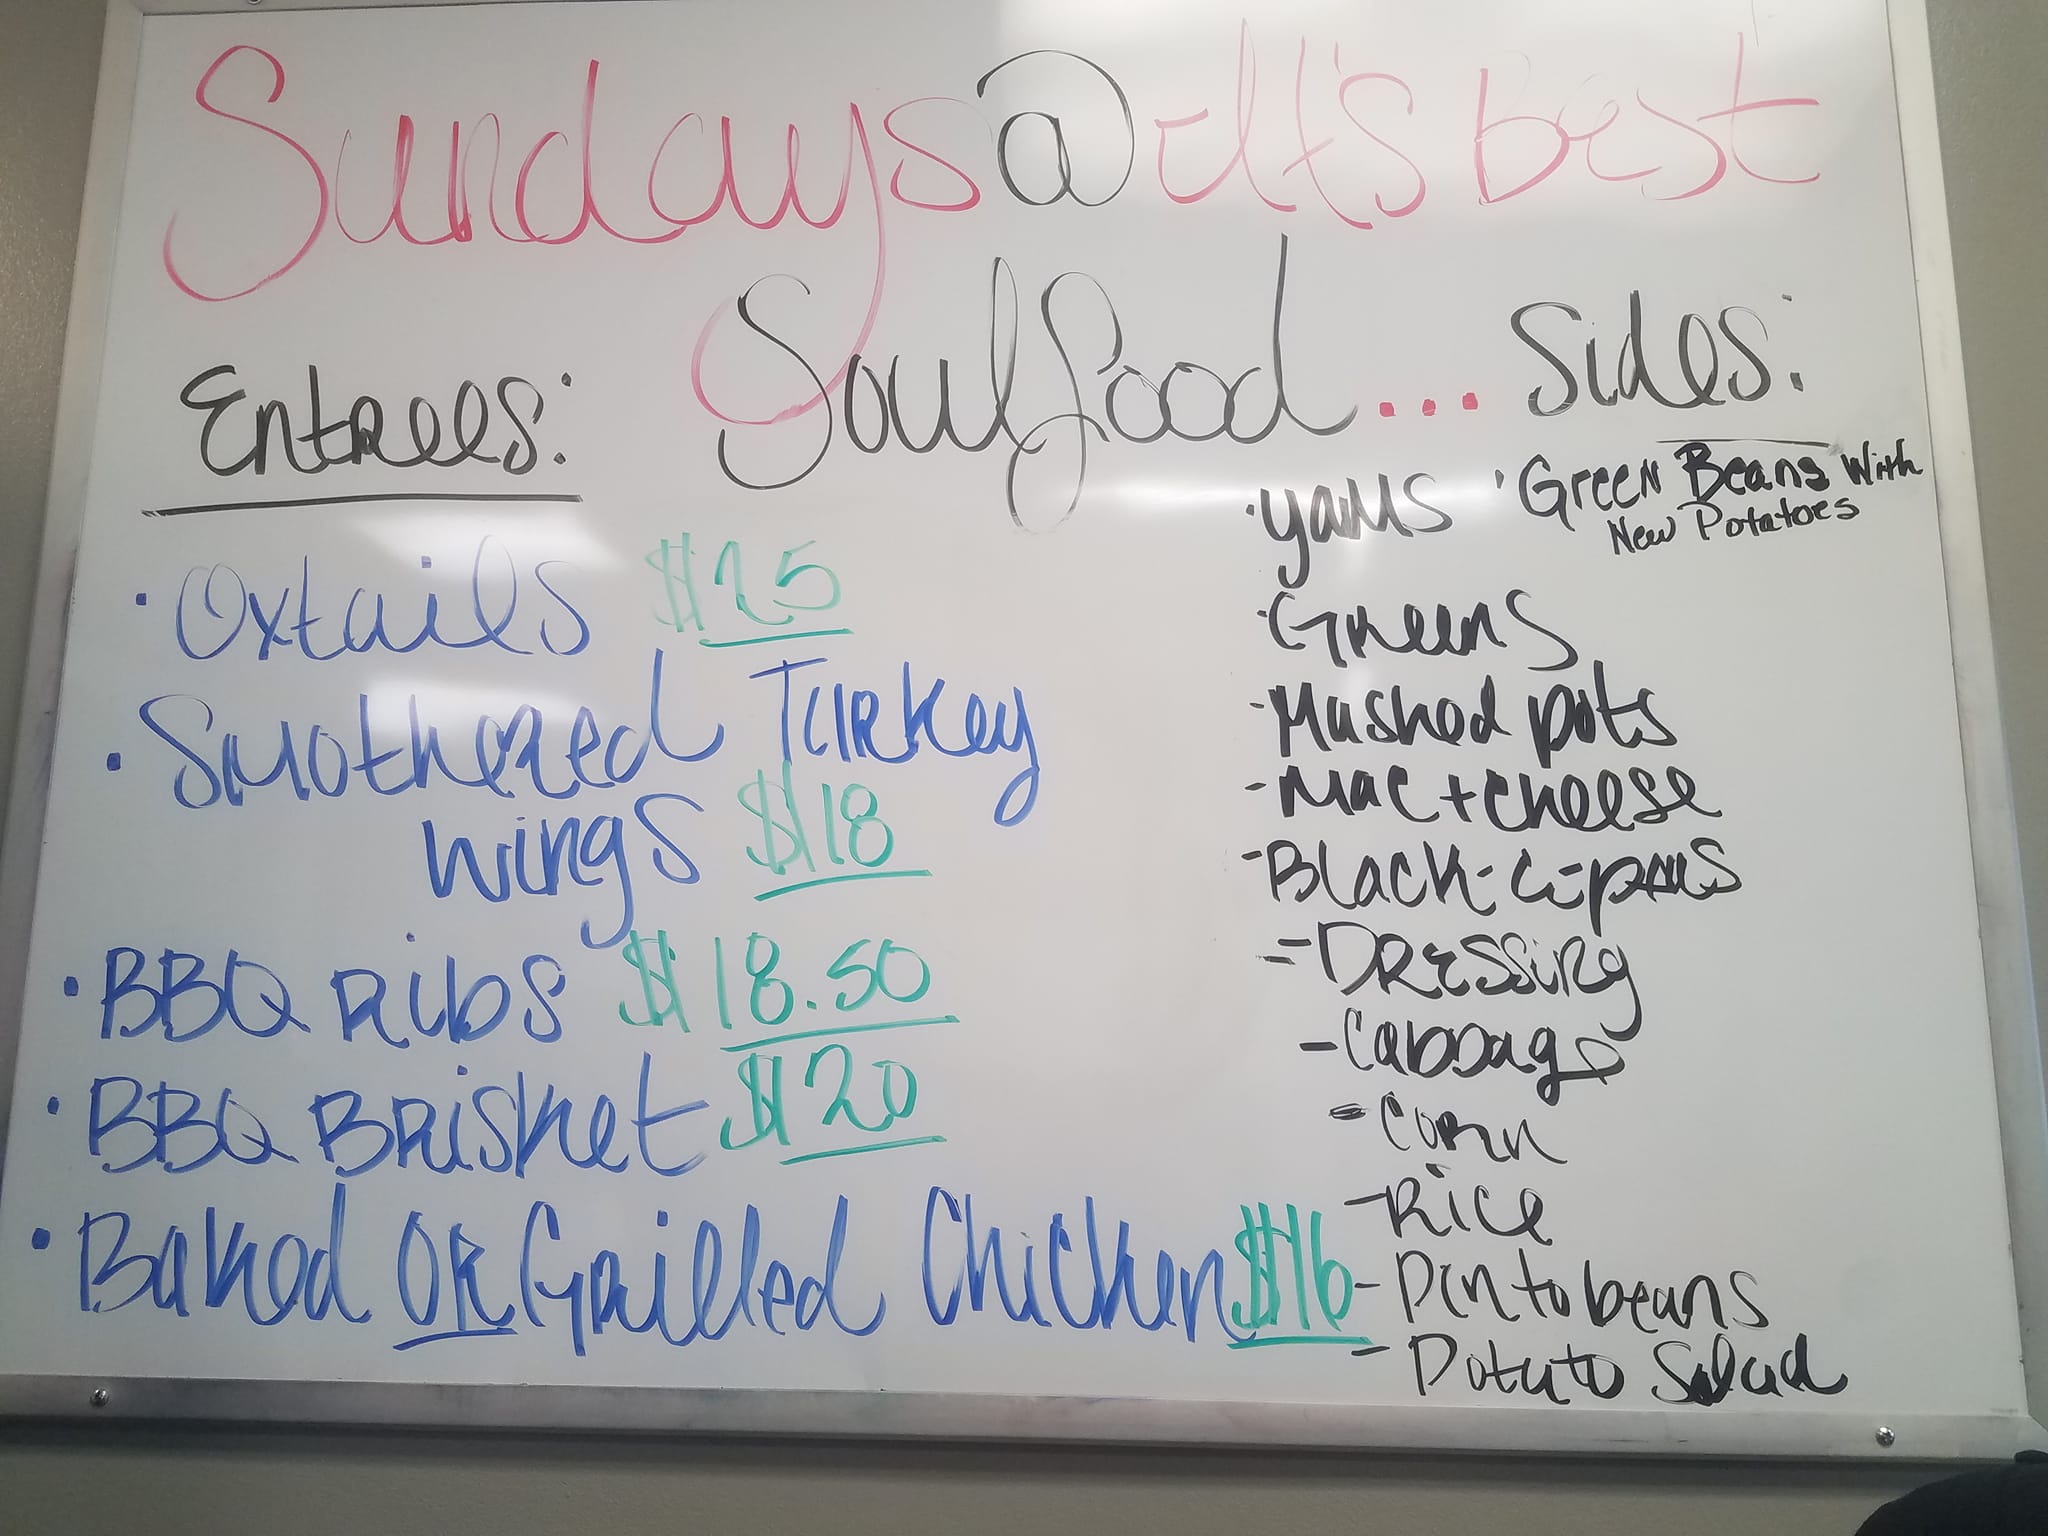 Sundays @ It's Best
Soulfood...
Entrees:
• Oxtails $25
• Smothered Turkey
wings $18
• BBQ Ribs $18.50
• BBQ Brisket $20
• Baked OR Grilled Chicken $16
Sides:
• Yams • Green Beans With
New Potatoes
• Greens
- Mashed pots
- Mac + cheese
- Black-i-peas
- Dressing
- Cabbage
- Corn
- Rice
- Pinto beans
- Potato Salad